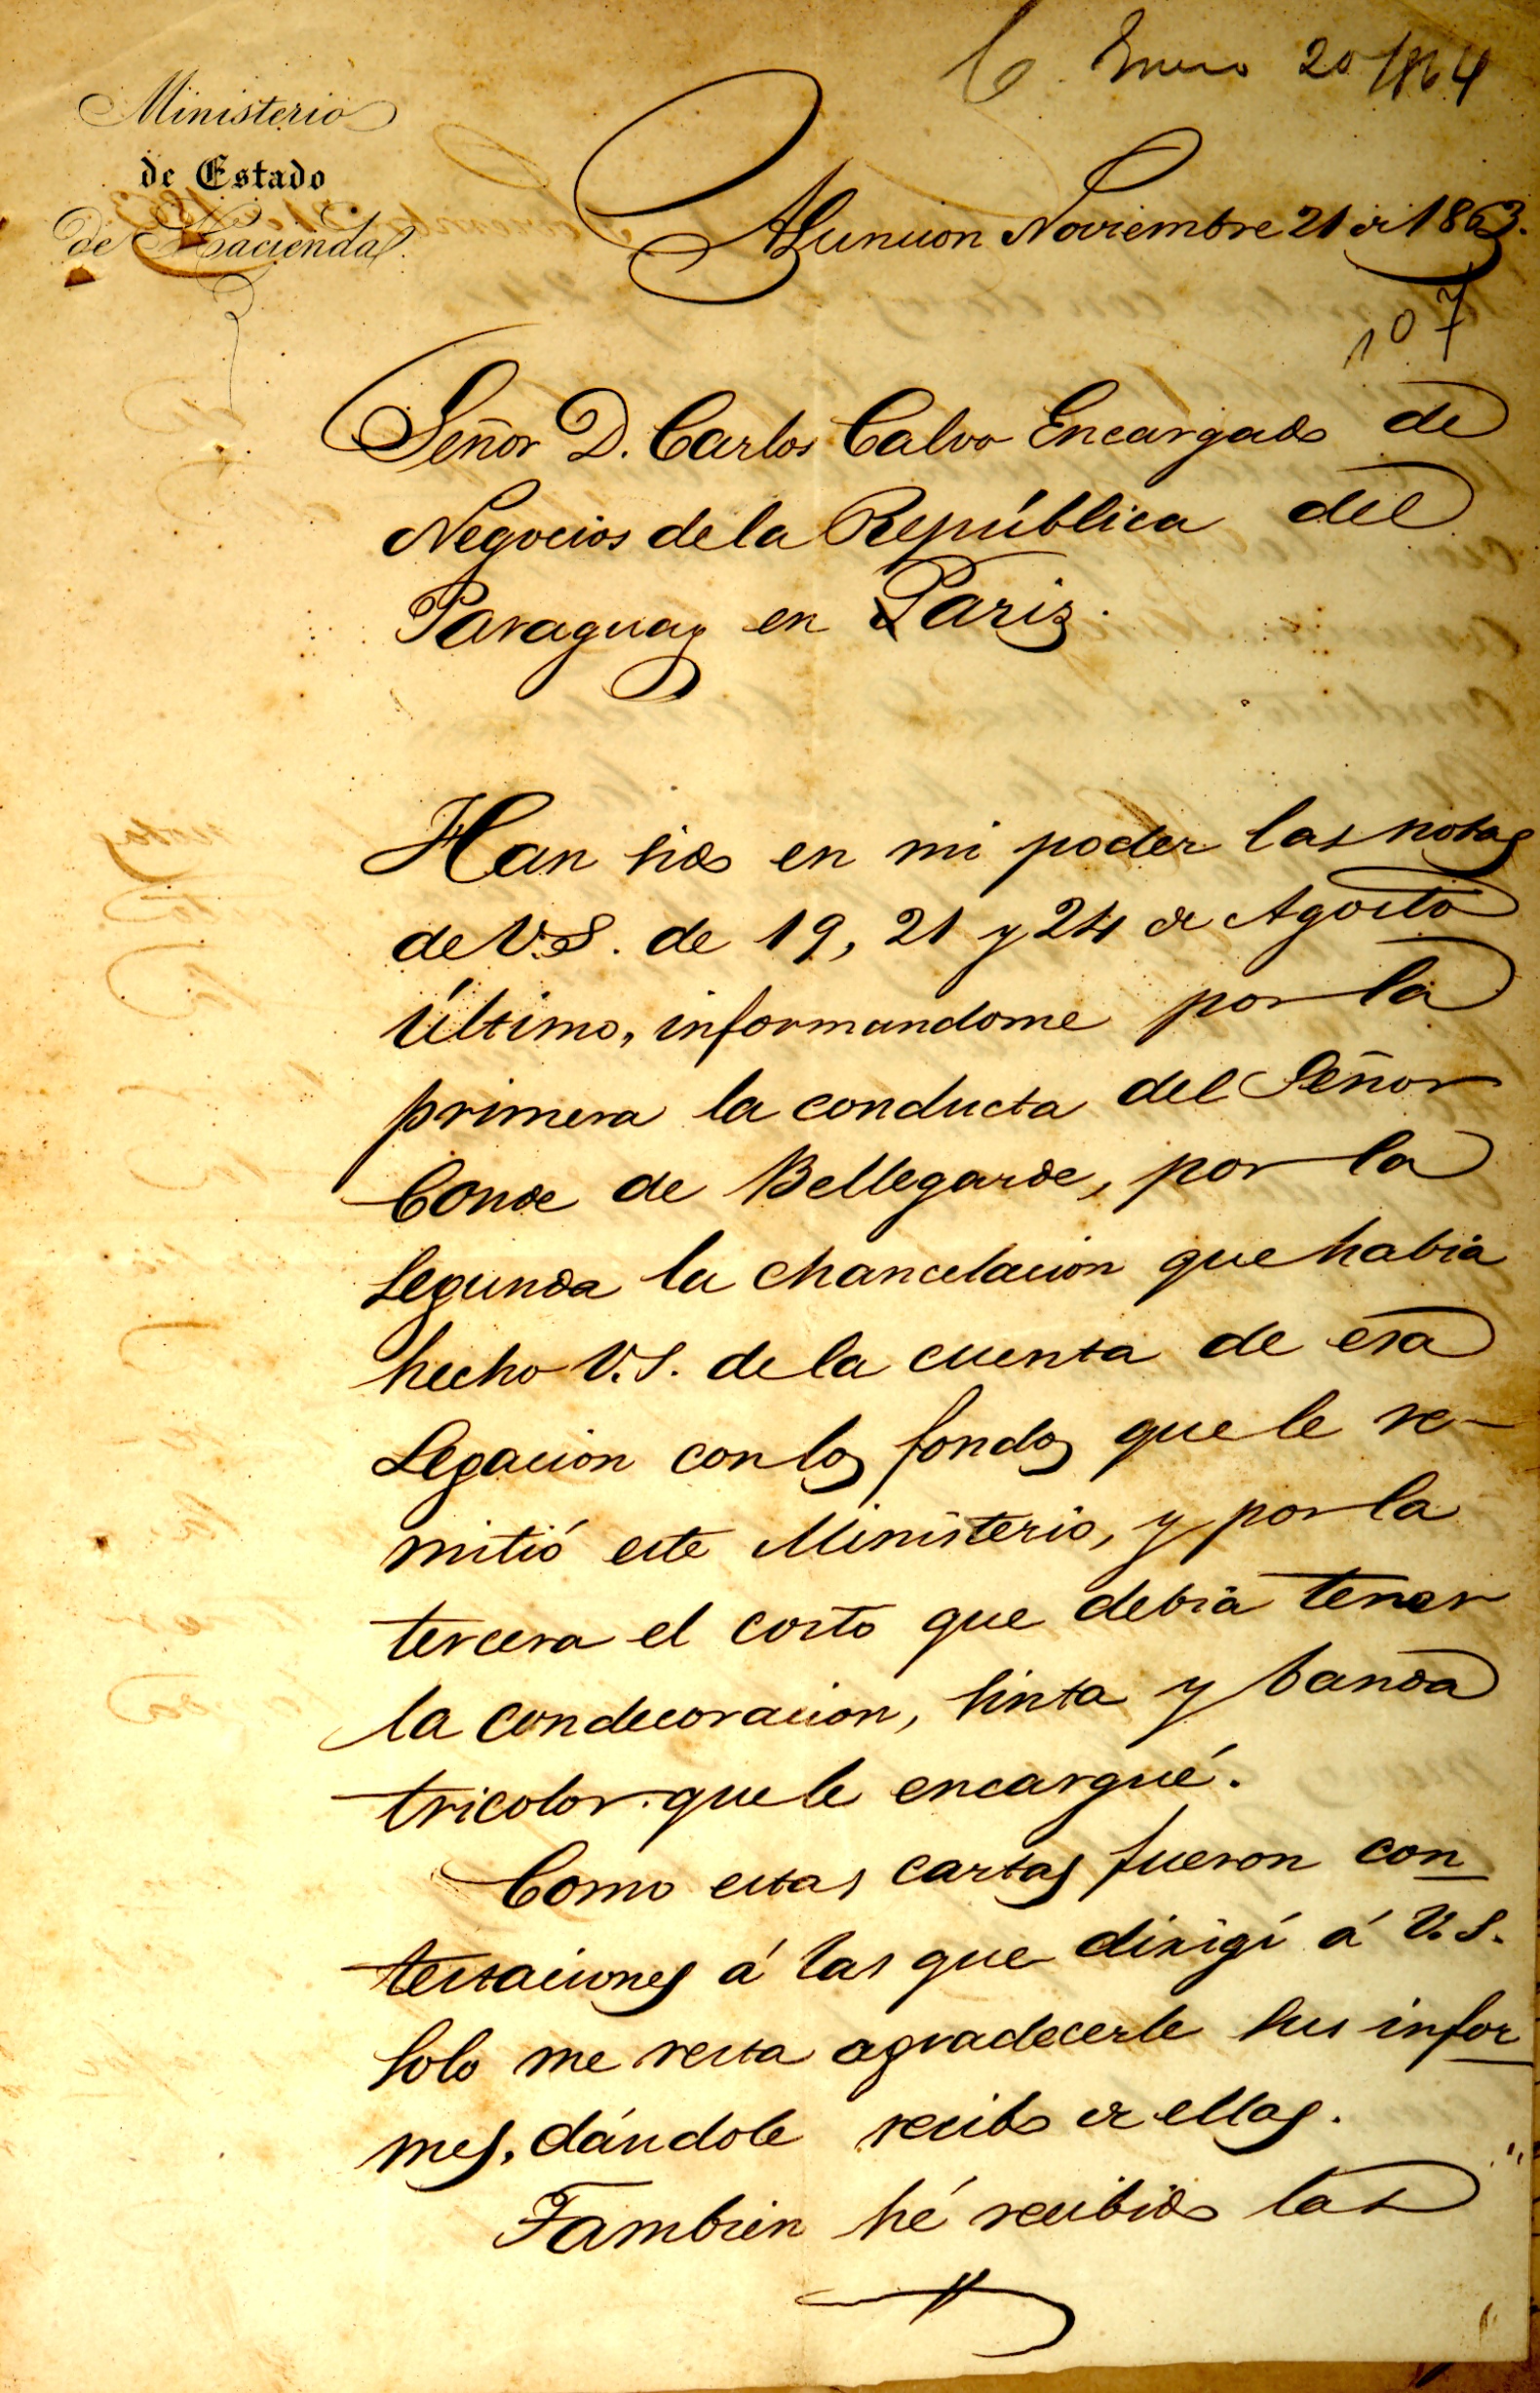 C. Enero 20/1864
Ministerio
de Estado
de Hacienda
Asuncion Noviembre 21 de 1863.
107
Señor D. Carlos Calvo Encargado de
Negocios de la República del
Paraguay en Pariz.
Han sido en mi poder las notas
de V.S. de 19, 21 y 24 de Agosto
último, informandome por la
primera la conducta del Señor
Conde de Bellegarde, por la
segunda la chancelacion que habia
hecho V.S. de la cuenta de esa
Legacion con los fondos que le re-
mitió este Ministerio, y por la
tercera el costo que debia tener
la condecoracion, sinta y banda
tricolor que le encargué.
Como estas cartas fueron con
testaciones á las que dirigí á V.S.
solo me resta agradecerle sus infor
mes, dándole recibo de ellas.
Tambien hé recibido las